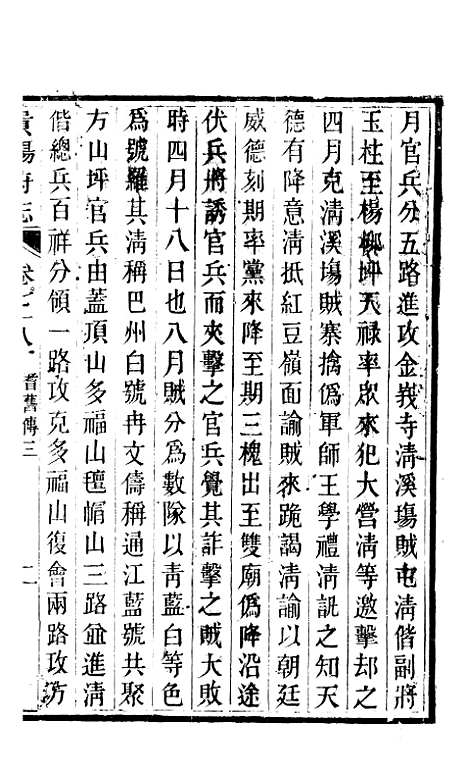 月官兵分五路進攻金義寺清溪塲賊屯清偕副將
玉柱至楊柳坪天禄率眾來犯大營清等邀擊却之
四月克清溪塲賊寨擒僞軍師王學禮清訊之知天
德有降意清抵紅豆嶺面諭賊來跪謁清諭以朝廷
威德刻期率黨來降至期三槐出至雙廟僞降沿途
伏兵將誘官兵而夾擊之官兵覺其詐擊之賊大敗
時四月十八日也八月賊分爲數隊以青藍白等色
爲號羅其清稱巴州白號冉文儔稱通江藍號共聚
方山坪官兵由蓋頂山多福山氊帽山三路並進清
偕總兵百祥分領一路攻克多福山復會兩路攻方
貴陽府志 卷七十八 耆舊傳三 二